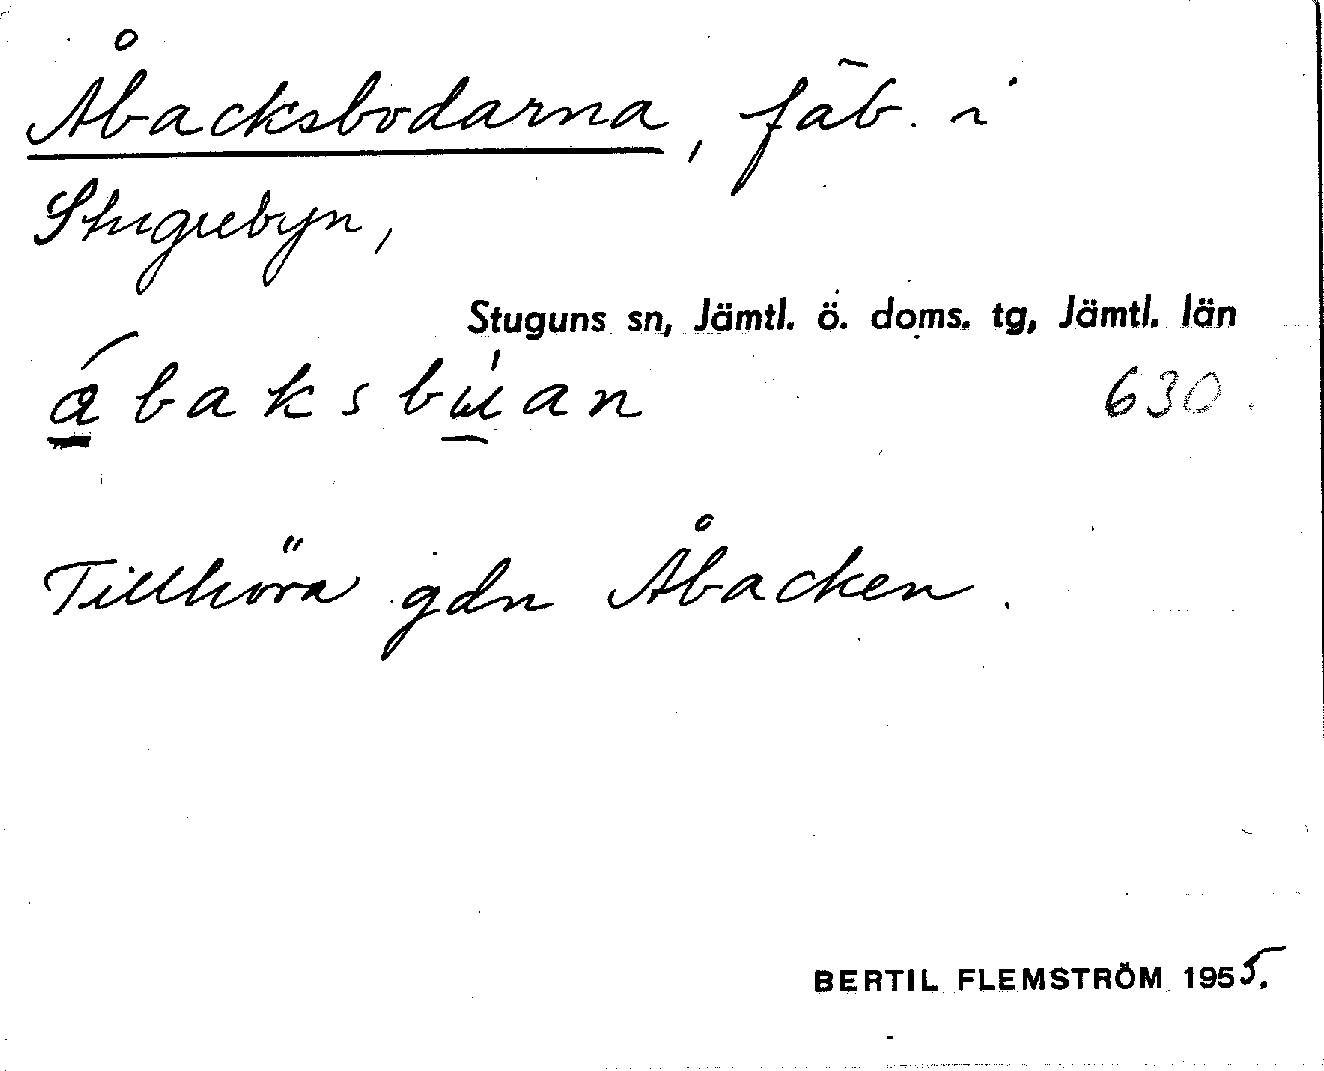 Åbacksbodarna, fäb. i
Stugubyn,
Stuguns sn, Jämtl. ö. doms. tg, Jämtl. län
630.
Tillhöra gdn Åbacken.
BERTIL FLEMSTRÖM 1955.